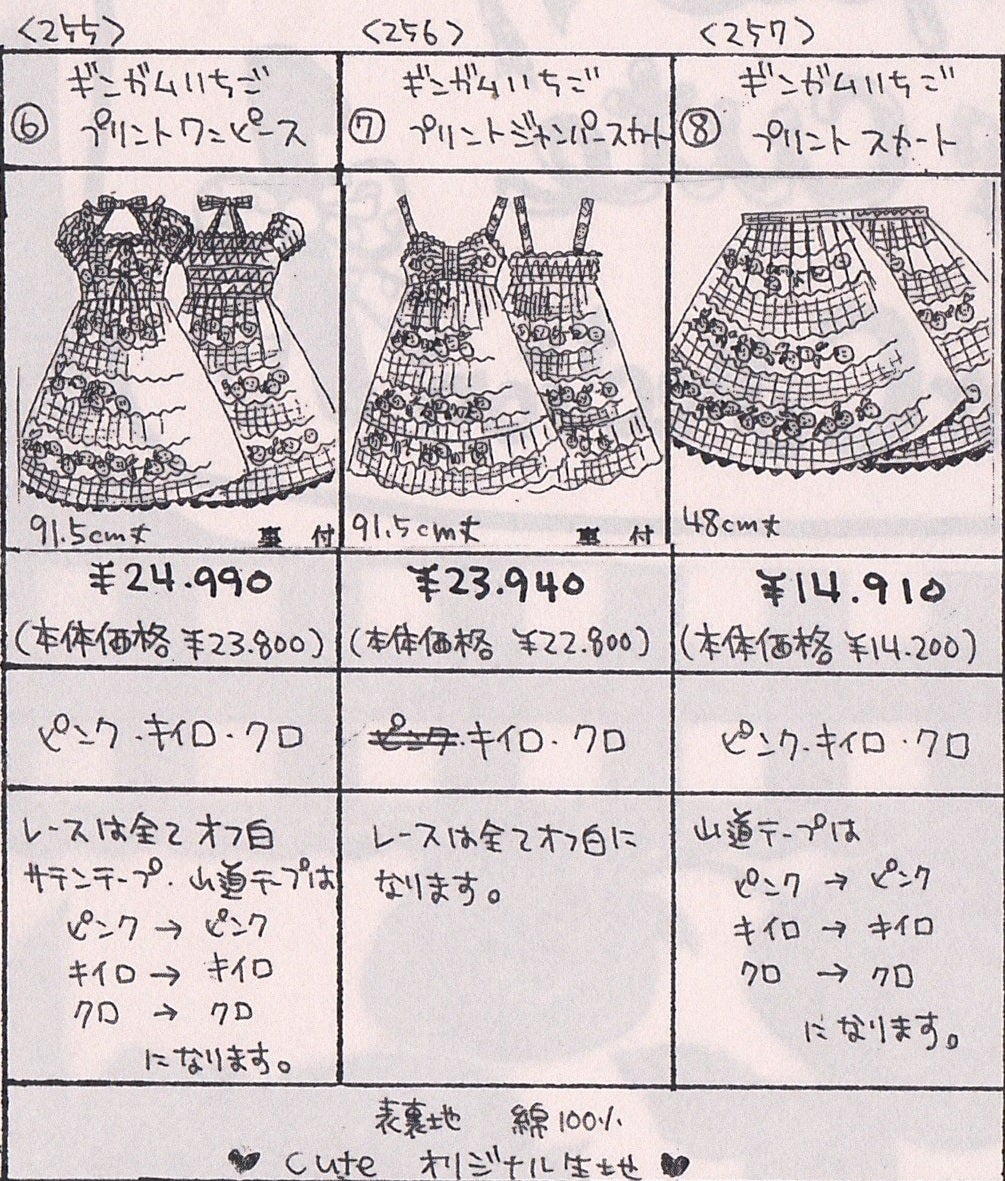 <255>
<256>
<257>
⑥ ギンガムいちご
プリントワンピース
⑦ ギンガムいちご
プリントジャンパースカート
⑧ ギンガムいちご
プリントスカート
91.5cm丈 裏付
91.5cm丈 裏付
48cm丈
¥24.990
(本体価格 ¥23.800)
¥23.940
(本体価格 ¥22.800)
¥14.910
(本体価格 ¥14.200)
ピンク・キイロ・クロ
ピンク・キイロ・クロ
ピンク・キイロ・クロ
レースは全てオフ白
サテンテープ・山道テープは
ピンク → ピンク
キイロ → キイロ
クロ → クロ
になります。
レースは全てオフ白に
なります。
山道テープは
ピンク → ピンク
キイロ → キイロ
クロ → クロ
になります。
表裏地 綿100%
♥ Cute オリジナル生地 ♥